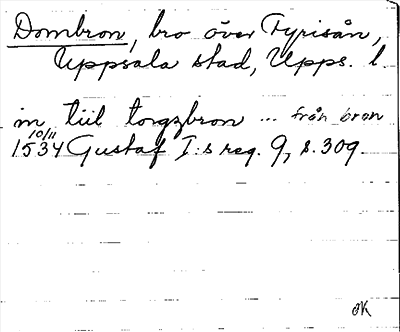 Dombron, bro över Fyrisån,
Uppsala stad, Upps. l.
in tiil torgzbron ... från bron
10/11
1534 Gustaf I:s reg. 9, s. 309.
ÖK